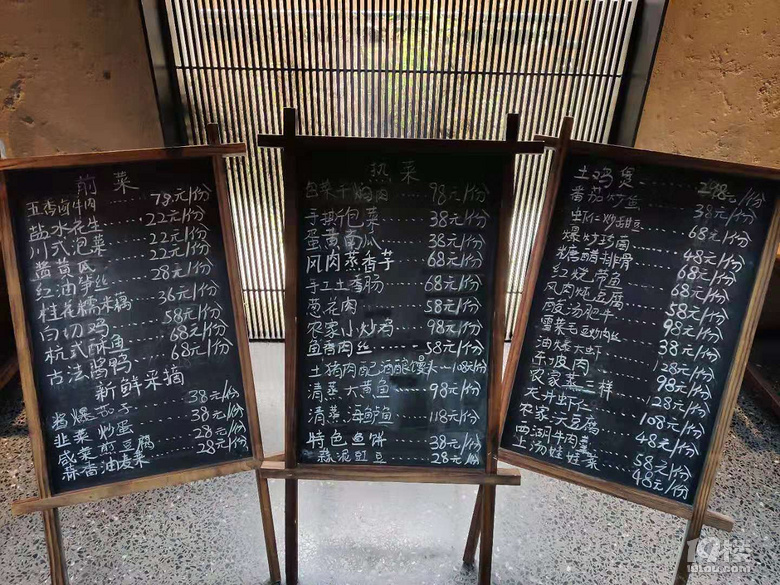 前菜
五香卤牛肉 78元/份
盐水花生 22元/份
川式泡菜 22元/份
酱黄瓜 22元/份
红油笋丝 28元/份
桂花糯米藕 36元/份
白切鸡 58元/份
杭式酥鱼 68元/份
古法酱鸭 68元/份
新鲜采摘
酱爆茄子 38元/份
韭菜炒蛋 38元/份
咸菜煎豆腐 28元/份
蒜香油麦菜 28元/份
热菜
干焖肉 98元/份
手撕包菜 38元/份
蛋黄南瓜 38元/份
风肉蒸香芋 68元/份
手工土香肠 68元/份
葱花肉 58元/份
农家小炒鸡 98元/份
鱼香肉丝 58元/份
土猪肉配酒酿馒头 108元/份
清蒸大黄鱼 98元/份
清蒸海鲈鱼 118元/份
特色鱼饼 38元/份
蒜泥豇豆 28元/份
土鸡煲 298元/份
番茄炒鱼 38元/份
虾仁炒甜豆 68元/份
爆炒 48元/份
糖醋排骨 68元/份
红烧带鱼 68元/份
风肉炖豆腐 58元/份
酸汤肥牛 98元/份
雪菜毛豆炒肉丝 38元/份
油爆大虾 128元/份
东坡肉 98元/份
农家蒸三样 128元/份
龙井虾仁 108元/份
农家 豆腐 48元/份
西湖牛肉羹 58元/份
上汤娃娃菜 48元/份
19楼
19lou.com